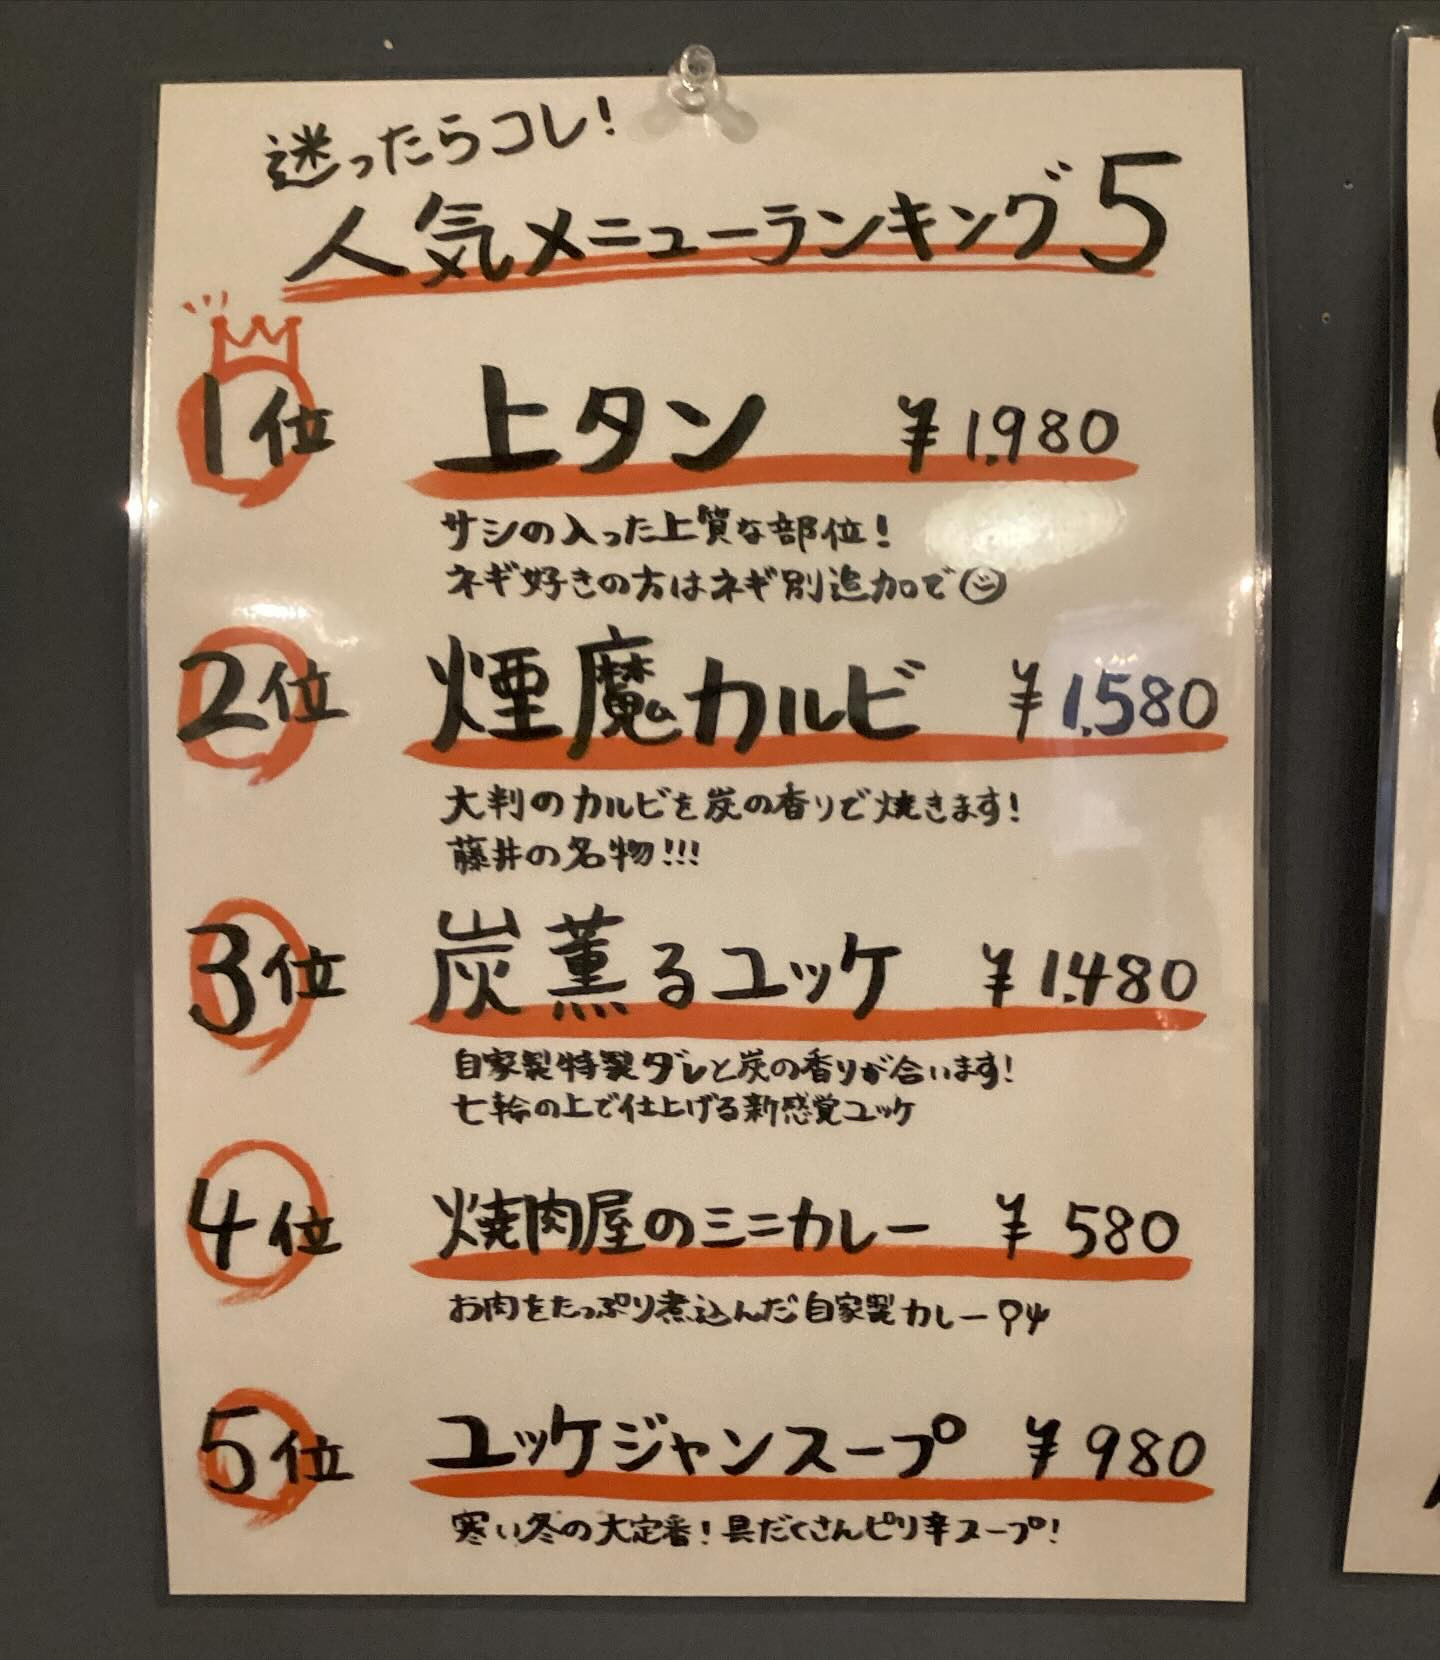 迷ったらコレ!
人気メニューランキング5
1位 上タン ¥1,980
サシの入った上質な部位!
ネギ好きの方はネギ別追加で
2位 煙魔カルビ ¥1,580
大判のカルビを炭の香りで焼きます!
藤井の名物!!!
3位 炭薫るユッケ ¥1,480
自家製特製ダレと炭の香りが合います!
七輪の上で仕上げる新感覚ユッケ
4位 焼肉屋のミニカレー ¥580
お肉をたっぷり煮込んだ自家製カレー
5位 ユッケジャンスープ ¥980
寒い冬の大定番!具だくさんピリ辛スープ!